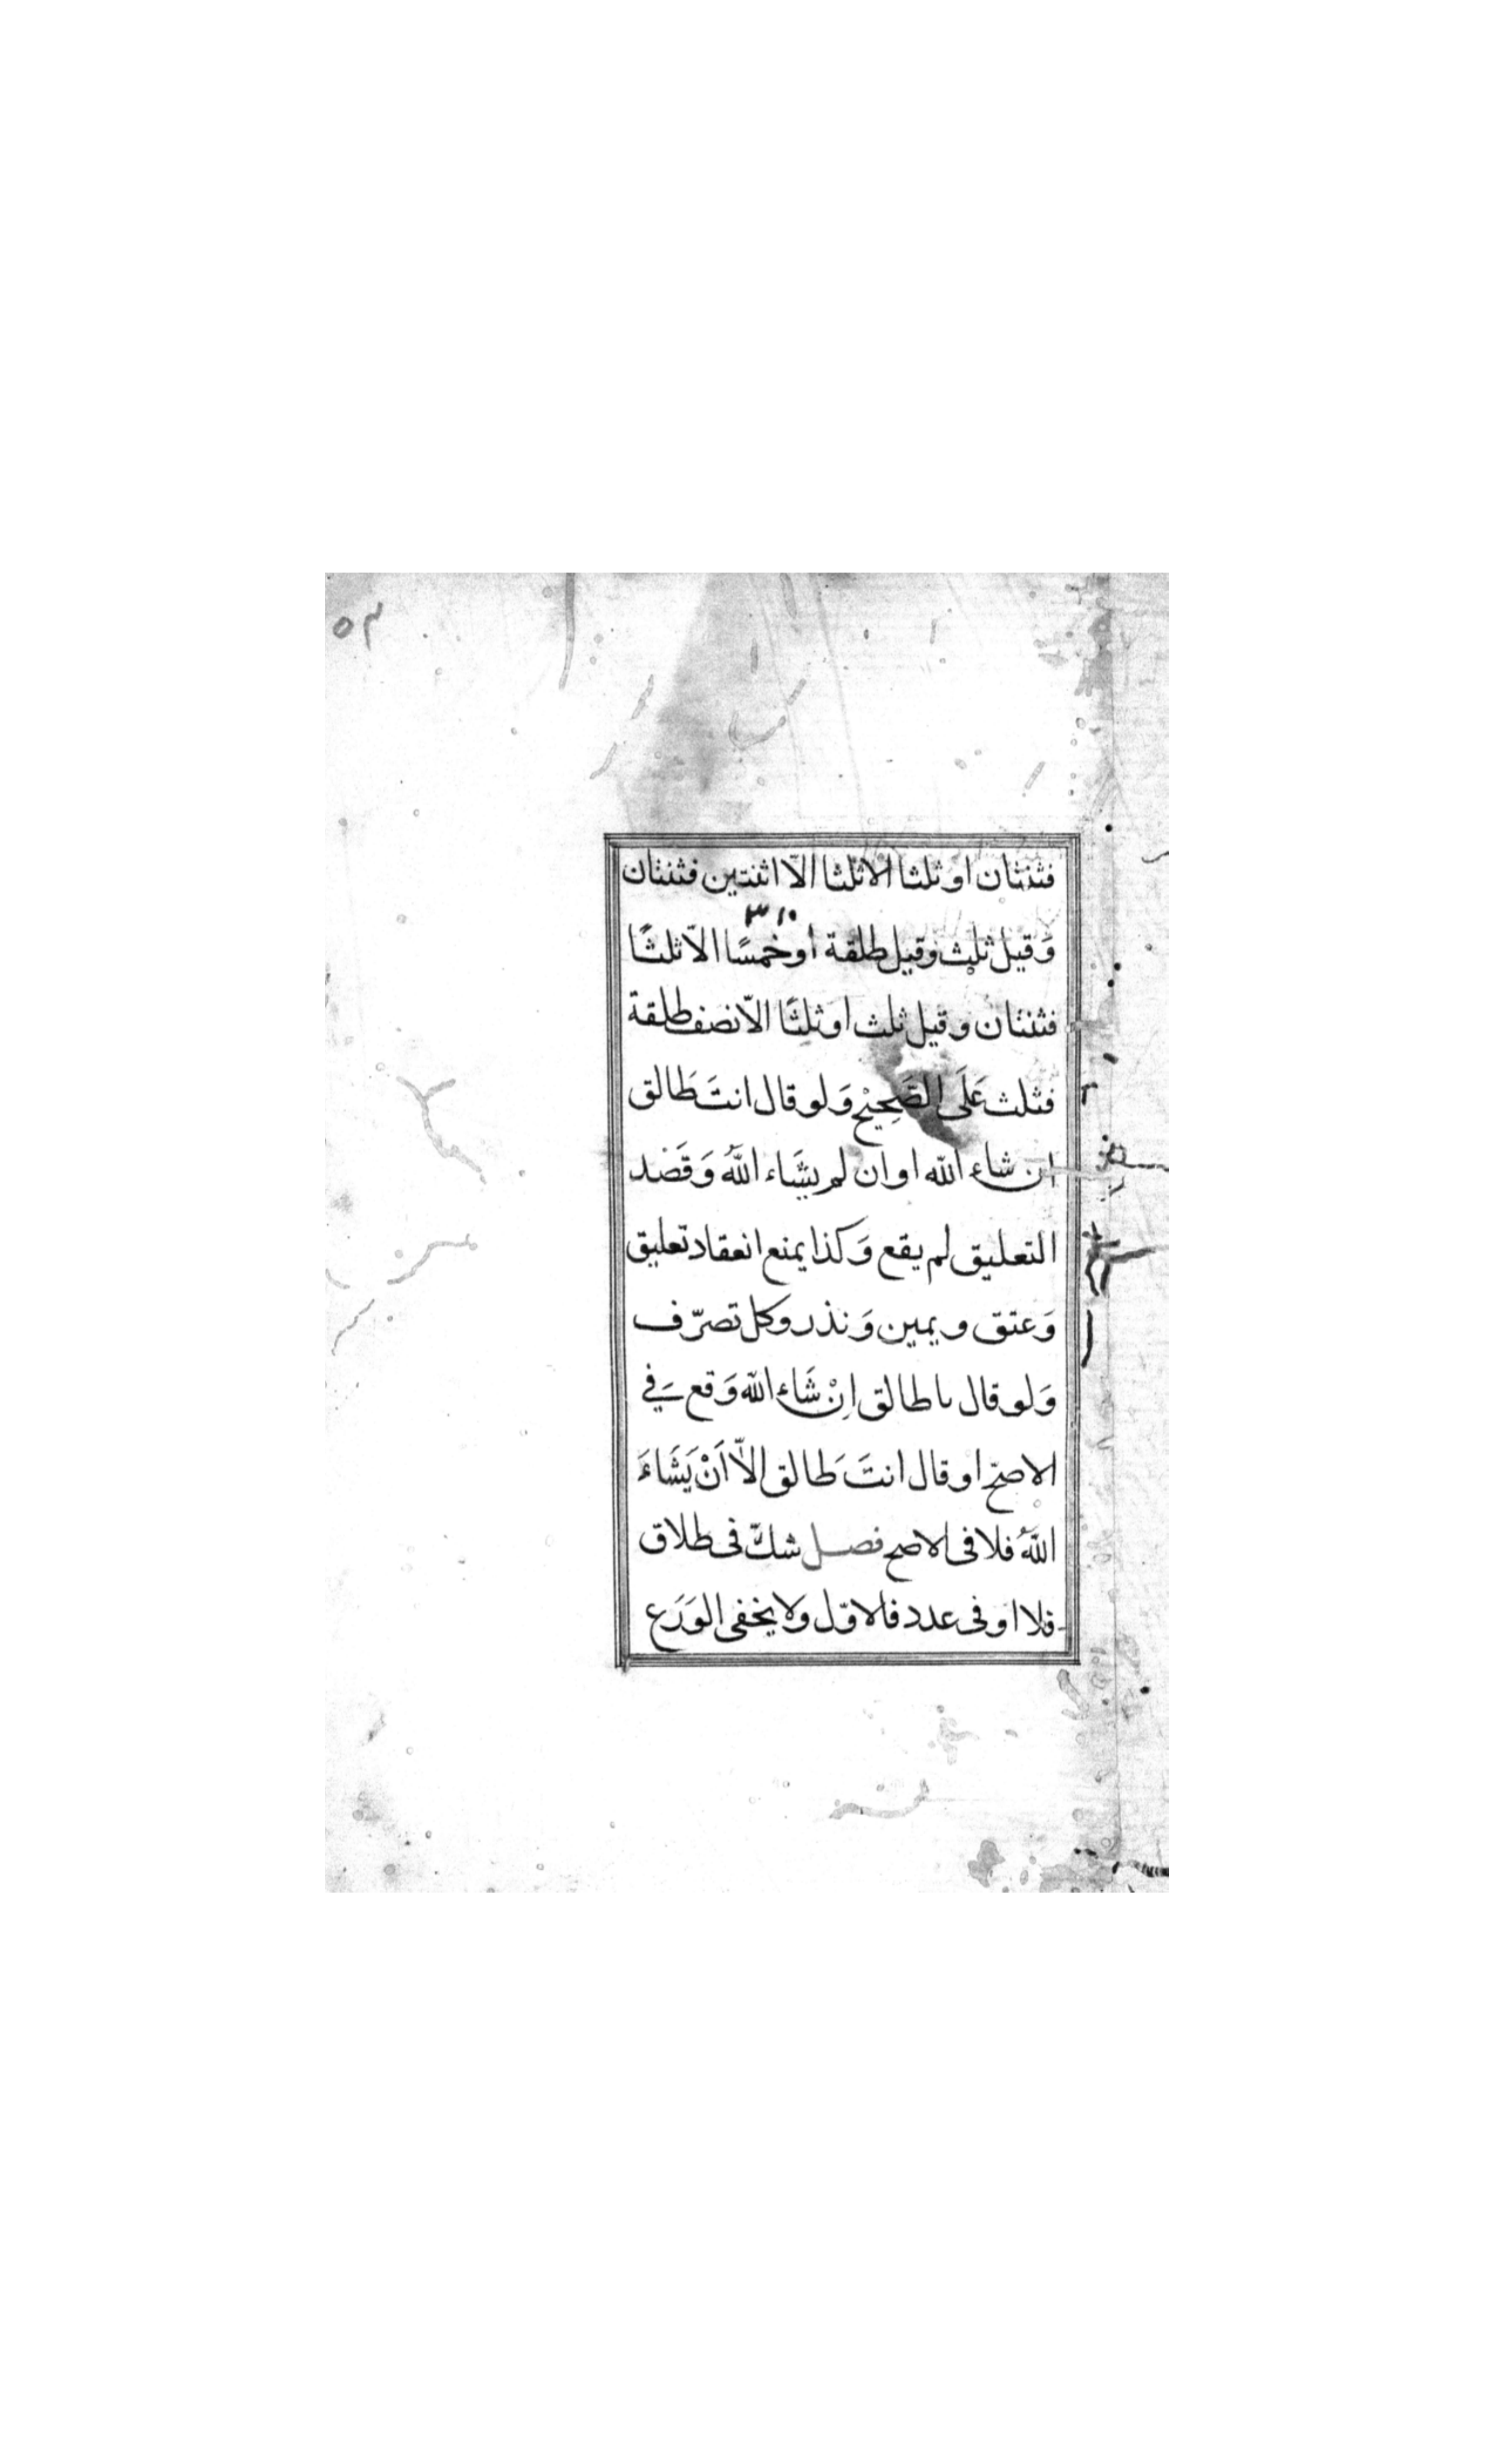 ٥٣
فثنتان اوثلثا الا ثلثا الّا اثنتين فثنتان
وَقيل ثلث وقيل طلقة أوخمسًا الاّ ثلثًا
فثنتان وقيل ثلث اوثلثًا الاّ نصف طلقة
فثلث عَلَى الصَّحِيْح وَلو قال انتَ طَالق
ان شاء الله اوان لم يشَاء اللهُ وَقَصْد
التعليق لم يقع وَكذا يمنع انعقاد تعليق
وَعتق ويمين وَنذر وكل تصرّف
وَلو قال ياطالق اِنْ شَاء الله وَقع في
الاصحّ اوقال انتَ طَالق الاّ اَنْ يَشَاءَ
اللهُ فلا فى الاصح فصل شكّ فى طلاق
فلا اوفى عدد فالاوّل ولا يخفى الوَرَع